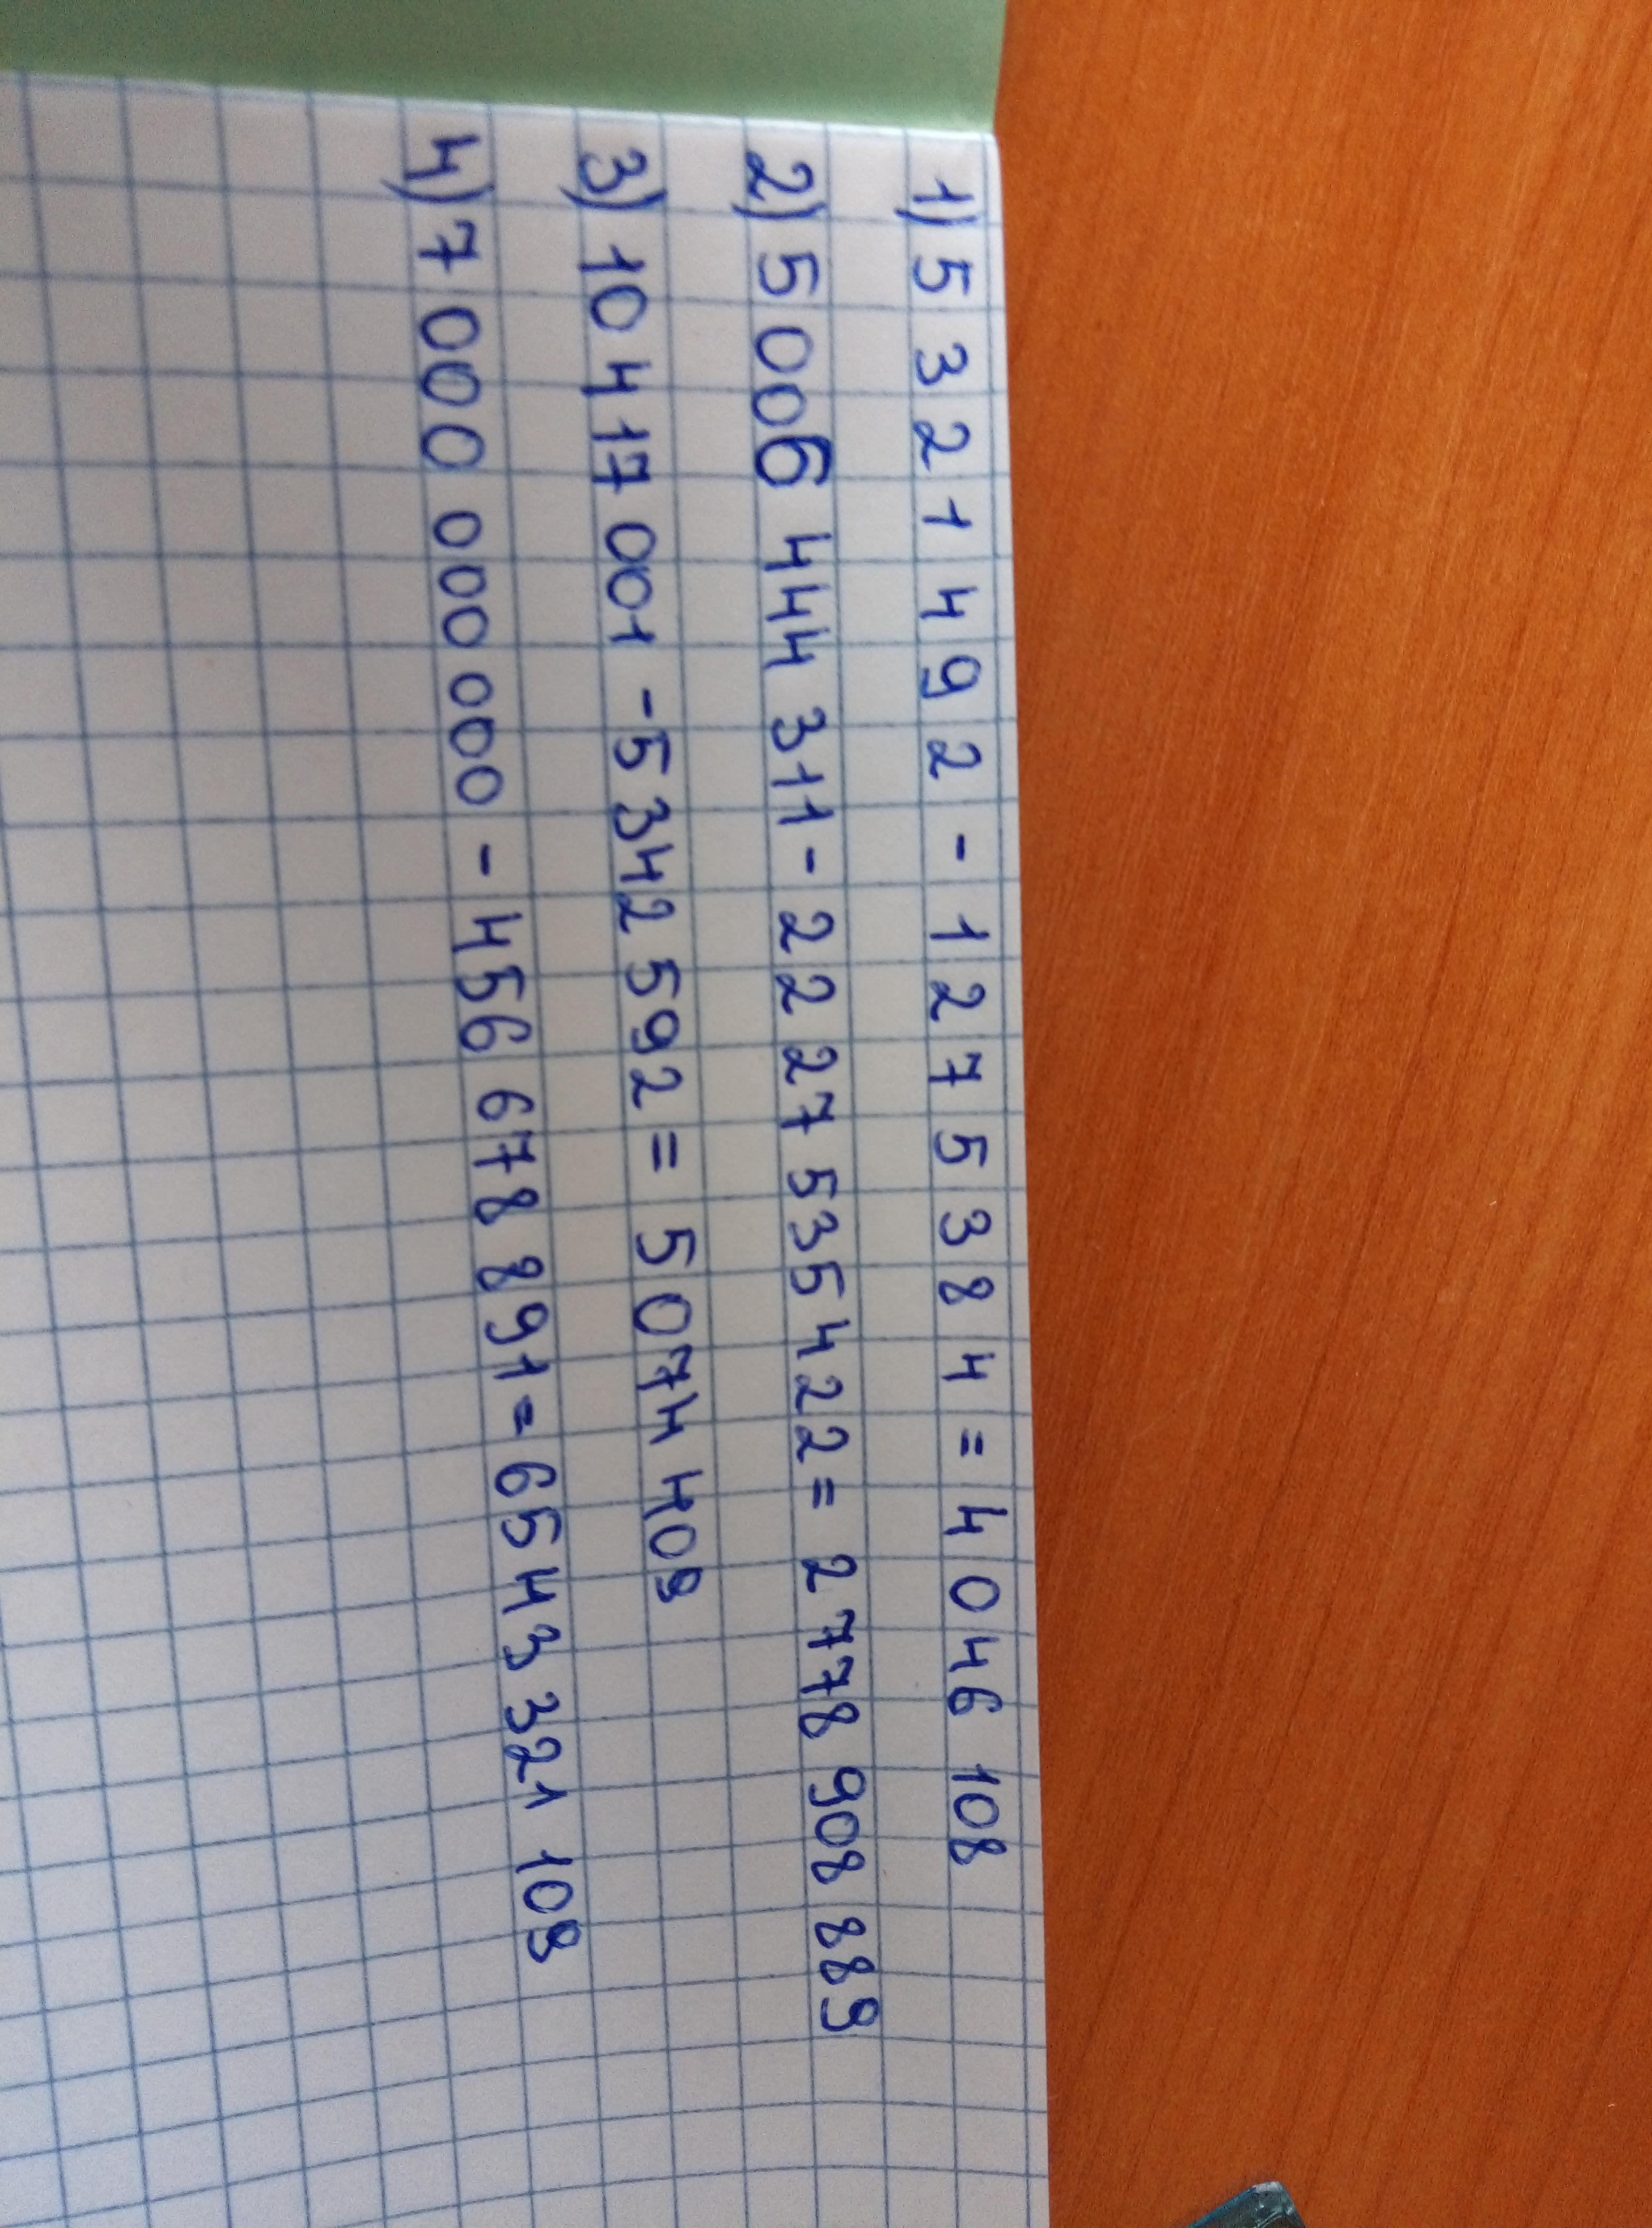 1) 5 3 2 1 4 9 2 - 1 2 7 5 3 8 4 = 4 0 46 108
2) 5 006 444 311 - 22 27 535 422 = 2 778 908 889
3) 10 4 17 001 - 5 342 592 = 5 074 409
4) 7 000 000 000 - 456 678 891 = 6543 321 109